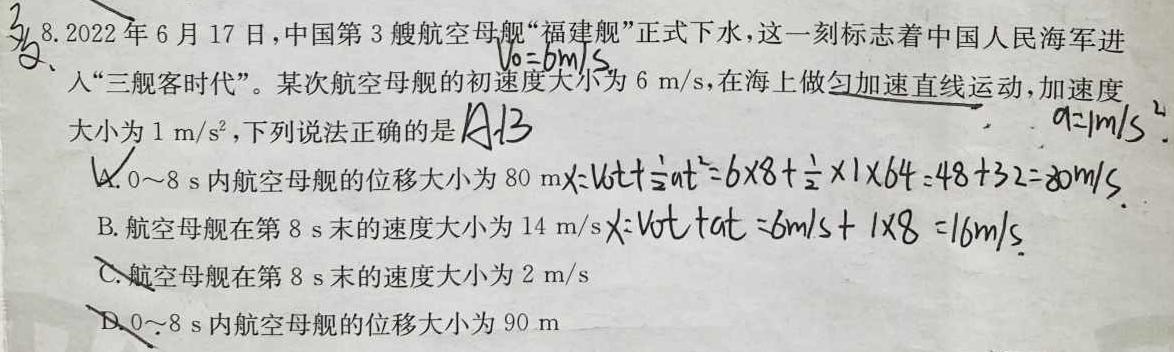 多
8. 2022年6月17日,中国第3艘航空母舰“福建舰”正式下水,这一刻标志着中国人民海军进
V₀=6m/s
入“三舰客时代”。某次航空母舰的初速度大小为 6 m/s,在海上做匀加速直线运动,加速度
a=1m/s²
大小为 1 m/s²,下列说法正确的是 AB
A. 0～8 s 内航空母舰的位移大小为 80 m x=V₀t+½at²=6×8+½×1×64=48+32=80m/s.
B. 航空母舰在第 8 s 末的速度大小为 14 m/s x=V₀t+at=6m/s+1×8=16m/s.
C. 航空母舰在第 8 s 末的速度大小为 2 m/s
D. 0～8 s 内航空母舰的位移大小为 90 m